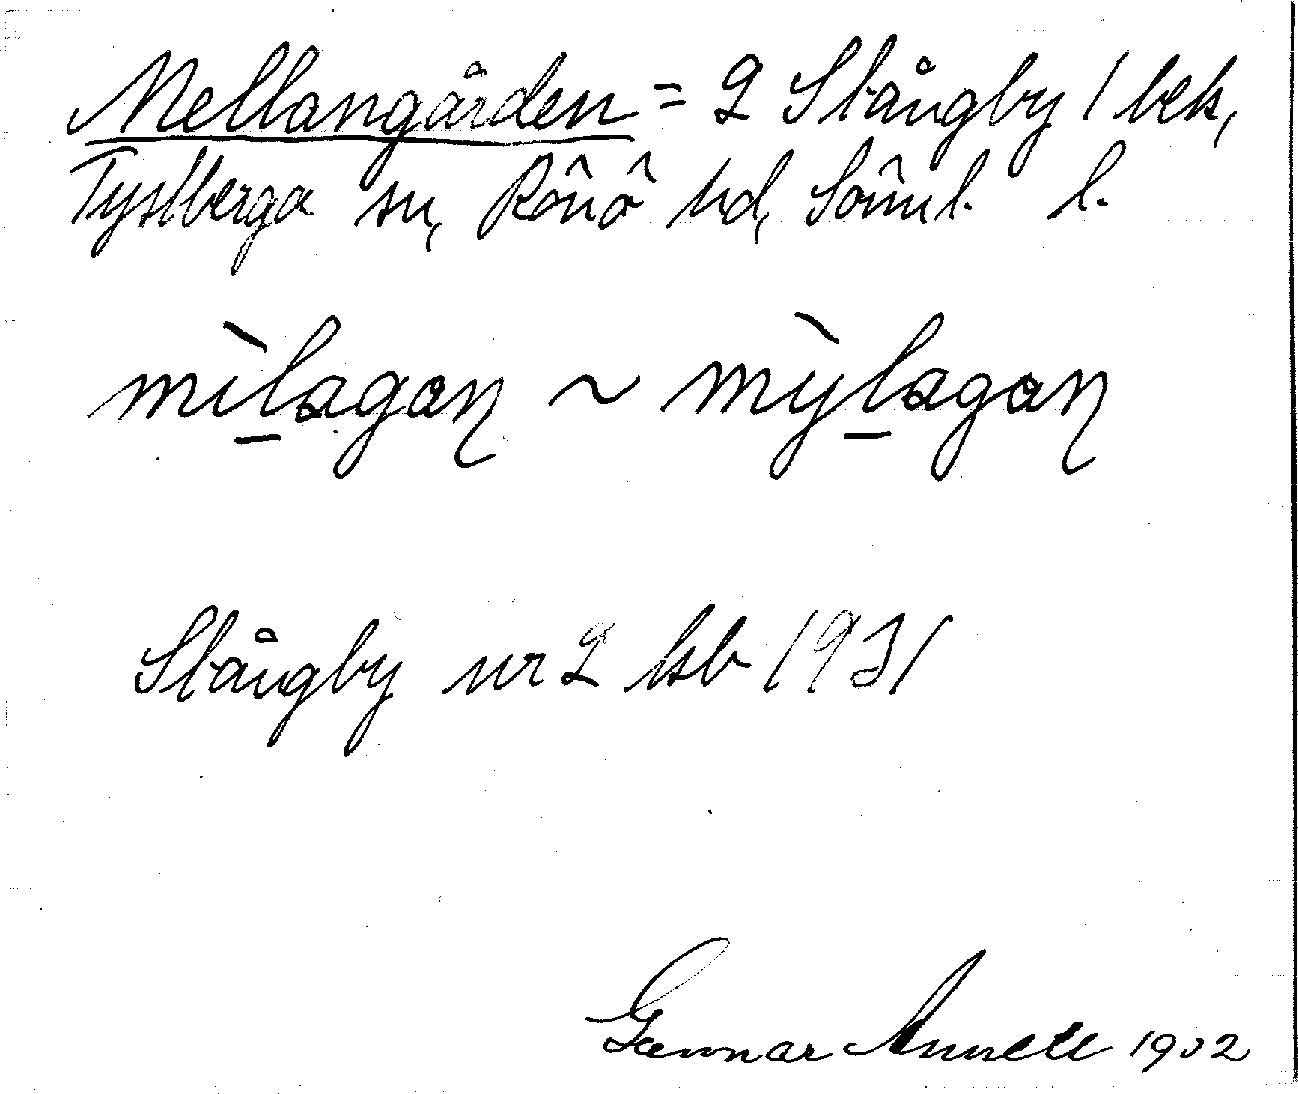 Mellangården = 2 Stångby / bek,
Tystberga sn, Rönö hd, Söml. l.
mìlagan ~ mỳlagan
Stångby nr 2 ksb 1931
Gunnar 1932